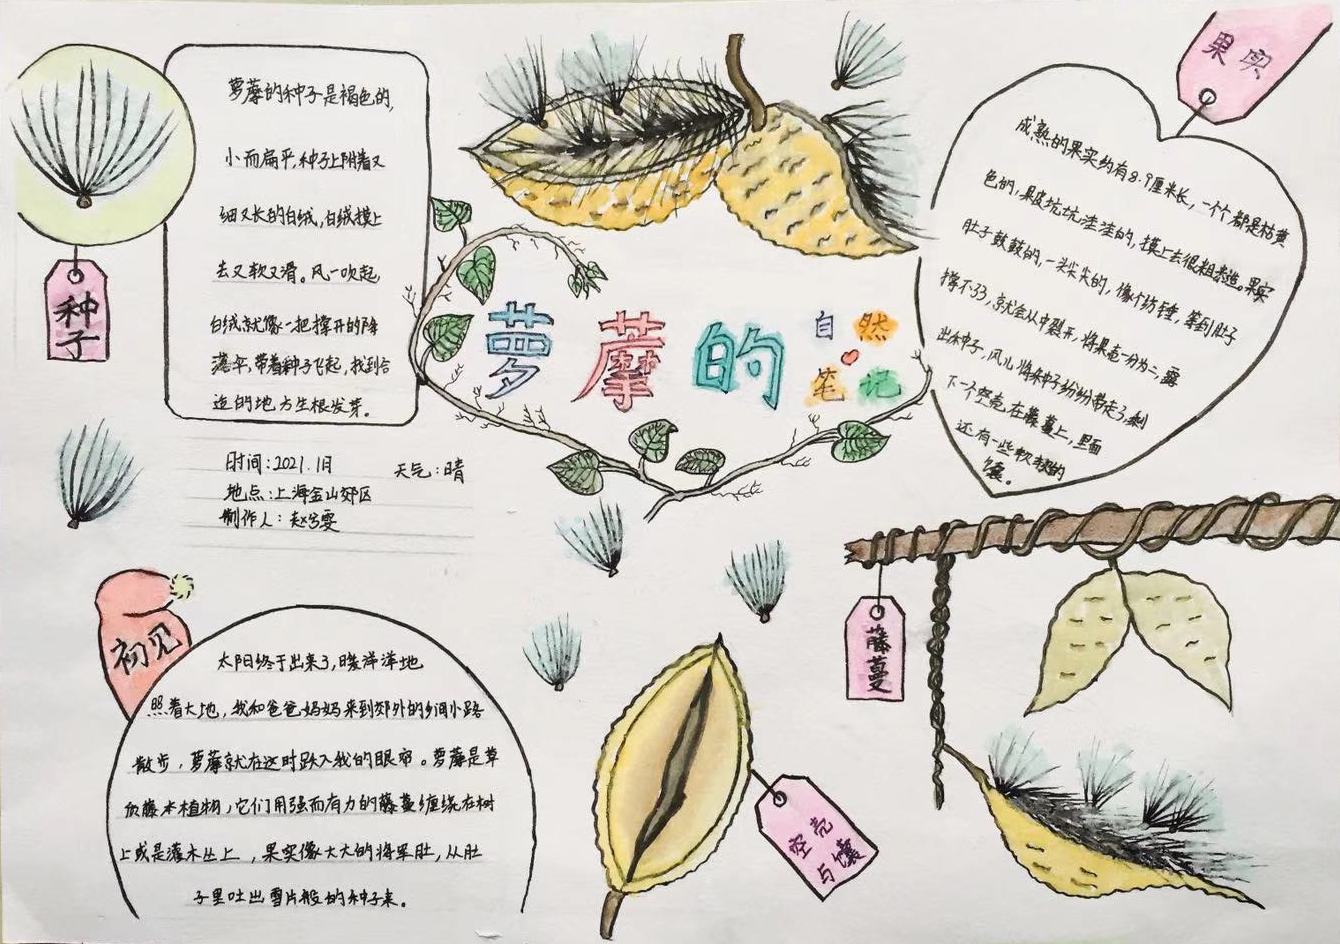 萝藦的
自然
笔记
种子
萝藦的种子是褐色的,
小而扁平,种子上附着又
细又长的白绒,白绒摸上
去又软又滑。风一吹起
白绒就像一把撑开的降
落伞,带着种子飞起,找到合
适的地方生根发芽。
时间:2021.1月
天气:晴
地点:上海金山郊区
制作人:赵兮雯
初见
太阳终于出来了,暖洋洋地
照着大地,我和爸爸妈妈来到郊外的乡间小路
散步,萝藦就在这时跃入我的眼帘。萝藦是草
质藤本植物,它们用强而有力的藤蔓缠绕在树
上或是灌木丛上,果实像大大的将军肚,从肚
子里吐出雪片般的种子来。
果实
成熟的果实约有8-9厘米长,一个个都是枯黄
色的,果皮坑坑洼洼的,摸上去很粗糙。果实
肚子鼓鼓的,一头尖尖的,像个纺锤,等到肚子
撑不了,就会从中裂开,将果壳一分为二,露
出种子,风儿将种子纷纷带走了,剩
下一个空壳在藤蔓上,里面
还有一些软软的
瓤。
藤蔓
空壳
与瓤